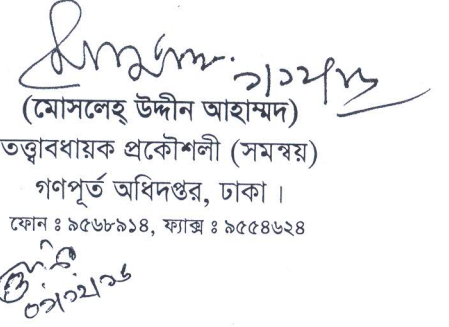 (মোসলেহ্ উদ্দীন আহাম্মদ)
তত্ত্বাবধায়ক প্রকৌশলী (সমন্বয়)
গণপূর্ত অধিদপ্তর, ঢাকা ।
ফোন ঃ ৯৫৬৮৯১৪, ফ্যাক্স ঃ ৯৫৫৪৬২৪